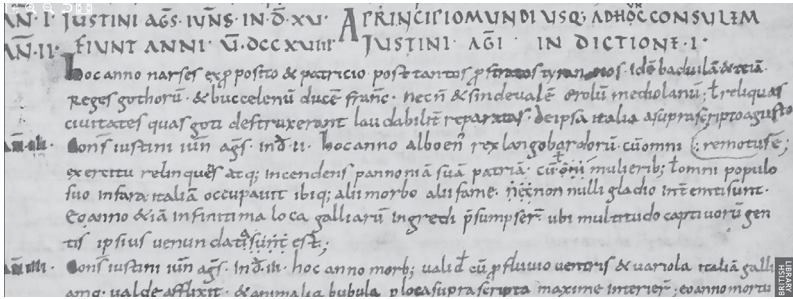 AN·I· IUSTINI AGS· IUNS· IN·D· XV· A PRINCIPIO MUNDI USQ; AD HOC CONSULEM
AN·II· FIUNT ANNI · V·DCCXVIIII· IUSTINI · AGI · INDICTIONE · I·
Hoc anno narses ex p posito & patricio post tantos tyrannos · idē baduilā & teiā·
Reges gothorū · & buccelenū ducē franc̄ · necn̄ & sindevalē erolū mediolanū; ł reliquas
civitates quas goti destruxerant laudabilit̄ reparatas · de ipsa italia a suprascripto augusto
Cons̄ iustini iun̄ ags̄ · ind̄·II· hoc anno alboen̄ rex langobardorū · cū omni remotus ē;
exercitu relinquēs atq; incendens pannoniā suā patriā · cū omī mulierib; ł omni populo
suo in fara italiā occupavit ibiq; alii morbo alii fame · necnon nulli gladio intēmti sunt·
Eo anno & iā in finitima loca galliarū ingredi p̄sumpser̄ · ubi multitudo captivorū gen
tis ipsius venundati sunt est;
AN·III· Cons̄ iustini iun̄ ags̄ · ind̄·III· hoc anno morb; valid̄ cū pfluvio ventris & variola italiā galli
amq; valde afflixit · & animalia bubula p loca suprascripta maxime interier̄; eo anno mortu
BRITISH
LIBRARY